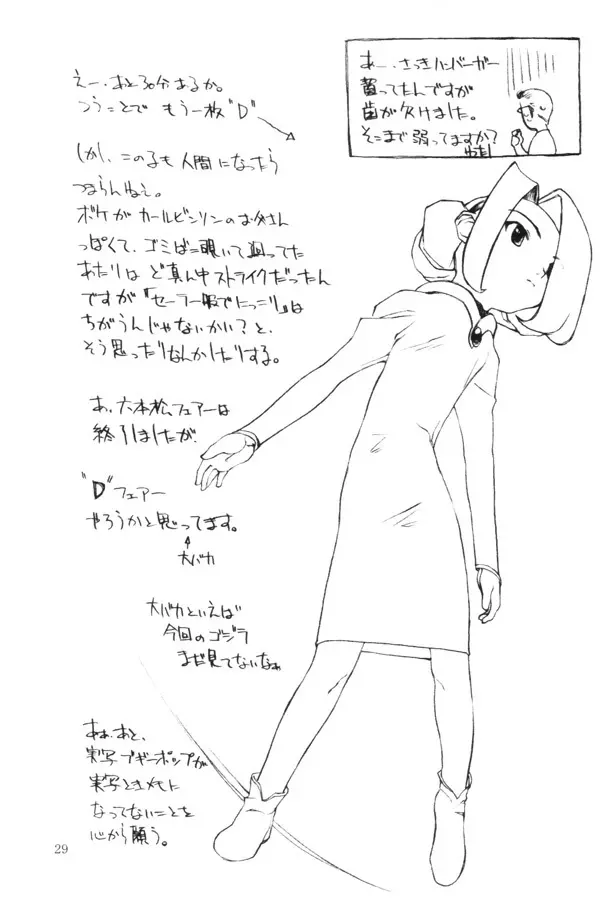 えー、あと30分あるか。
つうことで もう一枚"D"
しかし、この子も人間になったら
つまらんねぇ。
ボケがカールビンソンのお父さん
っぽくて、ゴミばこ覗いて回ってた
あたりはど真ん中ストライクだったん
ですが「セーラー服でにっこり」は
ちがうんじゃないかい?と、
そう思ったりなんかしたりする。
あ、六本松フェアーは
終了しましたが、
"D"フェアー
やろうかと思ってます。
大バカ
大バカといえば
今回のゴジラ
まだ見てないなぁ
あぁ、あと、
実写ブギーポップが
実写ときメモに
なってないことを
心から願う。
あー、さっきハンバーガー
食ってたんですが
歯が欠けました。
そこまで弱ってますか?
わたし
29